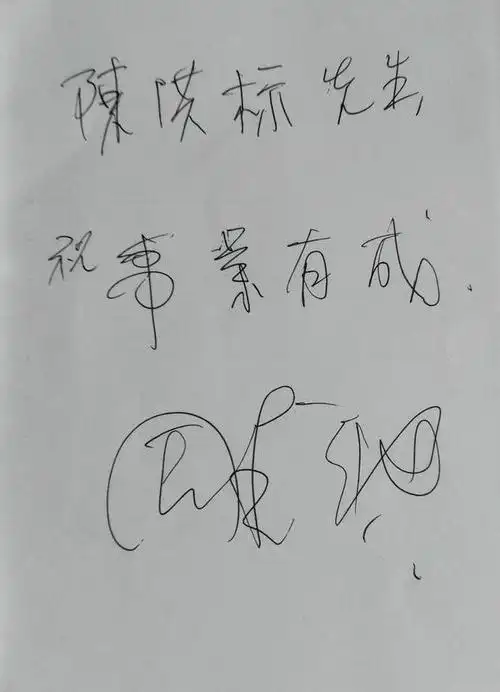 陳洪标先生
祝事業有成.